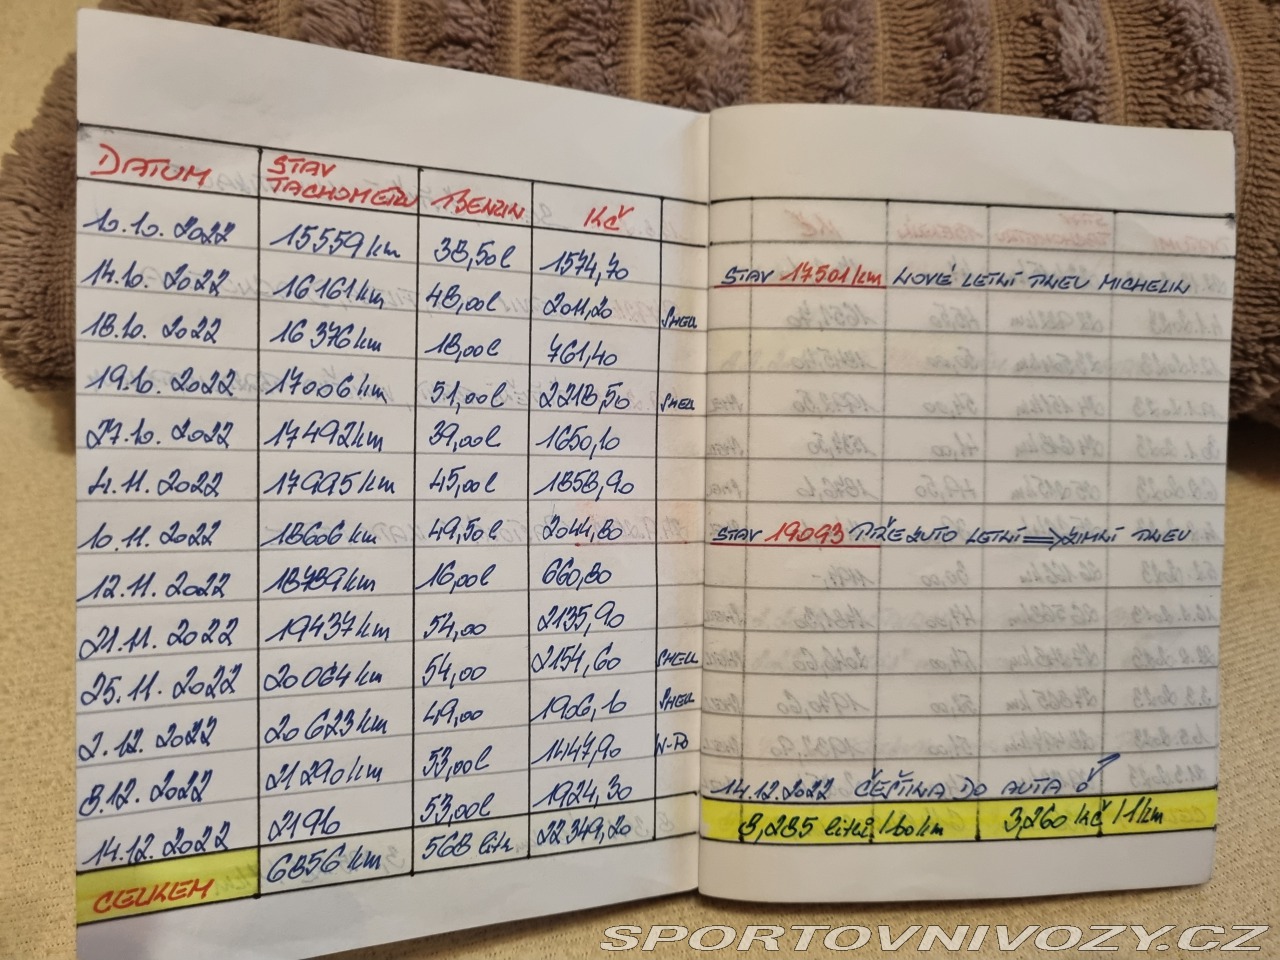 DATUM STAV TACHOMETRU BENZIN KČ
10.10.2022 15559 km 38,50l 1574,70
14.10.2022 16161 km 48,00l 2011,20 SHELL
18.10.2022 16376 km 18,00l 761,40
19.10.2022 17006 km 51,00l 2218,50 SHELL
27.10.2022 17492 km 39,00l 1650,10
4.11.2022 17995 km 45,00l 1858,90
10.11.2022 18606 km 49,50l 2044,80
12.11.2022 18789 km 16,00l 660,80
21.11.2022 19437 km 54,00 2135,90
25.11.2022 20064 km 54,00 2154,60 SHELL
2.12.2022 20623 km 49,00 1906,10 SHELL
8.12.2022 21290 km 53,00l 1447,90
14.12.2022 53,00l 1924,30
CELKEM 6856 km 568 litr. 22349,20
STAV 17501 km NOVÉ LETNÍ PNEU MICHELIN
STAV 19093 PŘEZUTO LETNÍ ⇒ ZIMNÍ PNEU
14.12.2022 ČEŠTINA DO AUTA!
8,285 litrů/100km 3,260 Kč/1km
SPORTOVNIVOZY.CZ